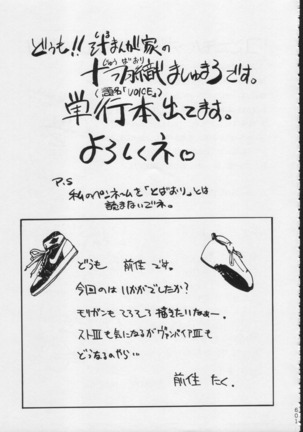 どうも!! 汁まんが家の
十羽織ましゅまろです。
じゅうばおり
(題名「VOICE」)
単行本出てます。
よろしくネ
P.S
私のペンネームを「とばおり」とは
読まないでネ。
どうも 前住 です。
今回のは いかがでしたか?
モリガンも そろそろ 描きたいなぁー。
ストIIIも気になるがヴァンパイアIIIも
どうなるのやら…
前住 たく。